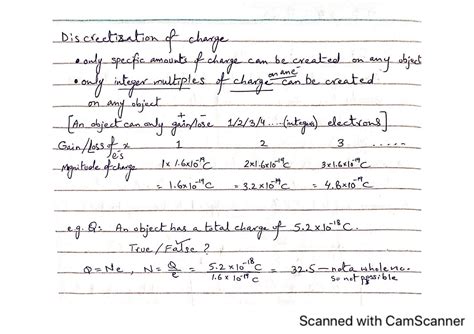 Discretization of charge
• only specific amounts of charge can be created on any object
• only integer multiples of charge on an e⁻ can be created
on any object
[An object can only gain/lose 1/2/3/4 .... (integer) electrons]
+ -
Gain/Loss of x e⁻s 1 2 3 ......
Magnitude of charge 1x1.6x10⁻¹⁹ 2x1.6x10⁻¹⁹ 3x1.6x10⁻¹⁹
= 1.6x10⁻¹⁹C = 3.2x10⁻¹⁹C = 4.8x10⁻¹⁹C
e.g. Q: An object has a total charge of 5.2x10⁻¹⁸C.
True/False?
Q=Ne, N = Q/e = 5.2x10⁻¹⁸C / 1.6x10⁻¹⁹C = 32.5 — not a whole no. so not possible
Scanned with CamScanner